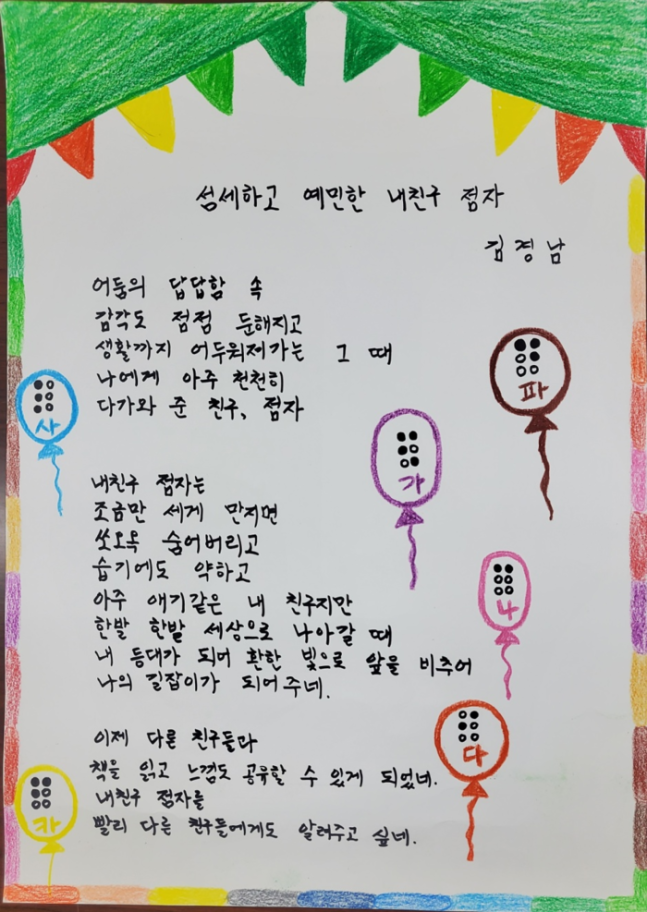 섬세하고 예민한 내친구 점자
김경남
어둠의 답답함 속
감각도 점점 둔해지고
생활까지 어두워져가는 그 때
나에게 아주 천천히
다가와 준 친구, 점자
내친구 점자는
조금만 세게 만지면
쏘오옥 숨어버리고
습기에도 약하고
아주 애기같은 내 친구지만
한발 한발 세상으로 나아갈 때
내 등대가 되어 환한 빛으로 앞을 비추어
나의 길잡이가 되어주네.
이제 다른 친구들과
책을 읽고 느낌도 공유할 수 있게 되었네.
내친구 점자를
빨리 다른 친구들에게도 알려주고 싶네.
사
파
가
나
다
카